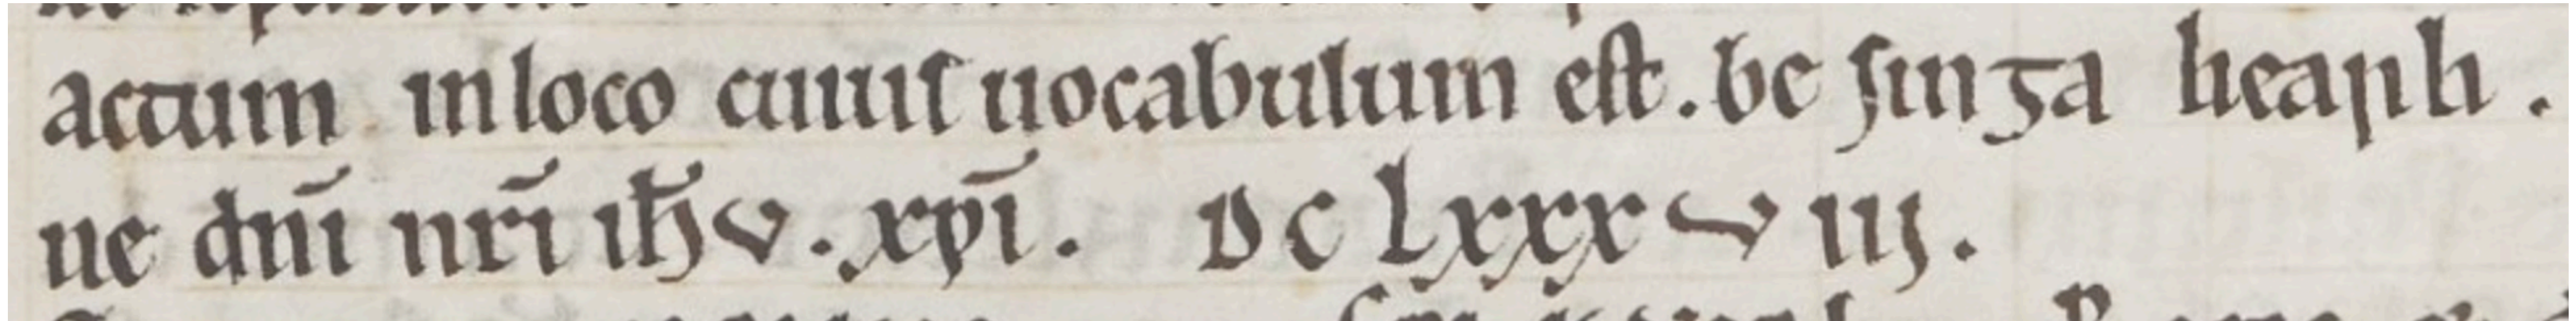 actum in loco cuiuſ uocabulum eſt . be ſinȝa hearh .
ne dn̄i nr̄i ıħv . xp̄i . DC lxxxviij .